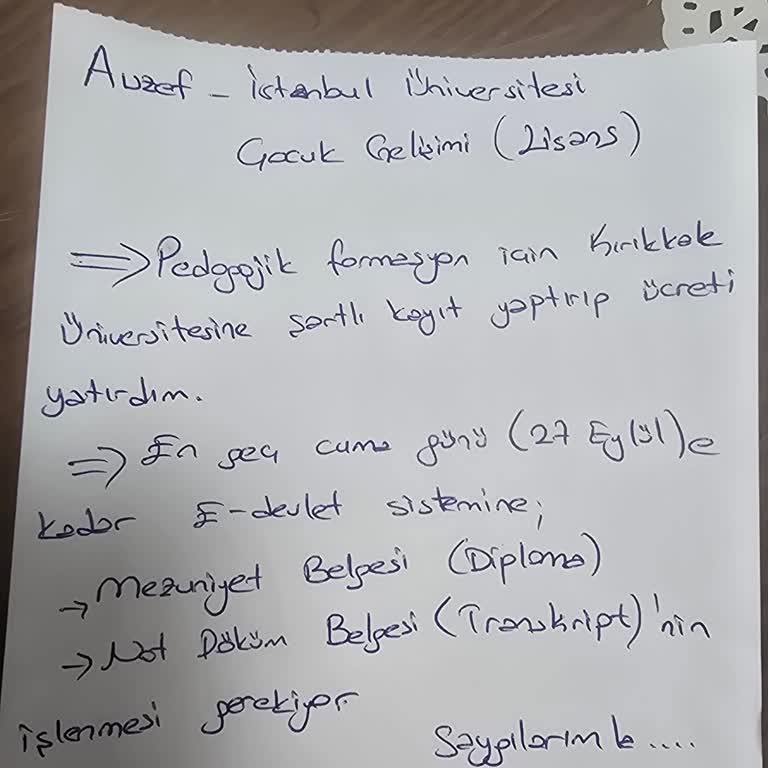 Auzef - İstanbul Üniversitesi
Çocuk Gelişimi (Lisans)
⇒ Pedgojik formasyon için Kırıkkale
Üniversitesine şartlı kayıt yaptırıp ücreti
yatırdım.
⇒ En geç cuma günü (27 Eylül)e
kadar E-devlet sistemine;
→ Mezuniyet Belgesi (Diploma)
→ Not Döküm Belgesi (Transkript)'nin
işlenmesi gerekiyor
Saygılarımla....